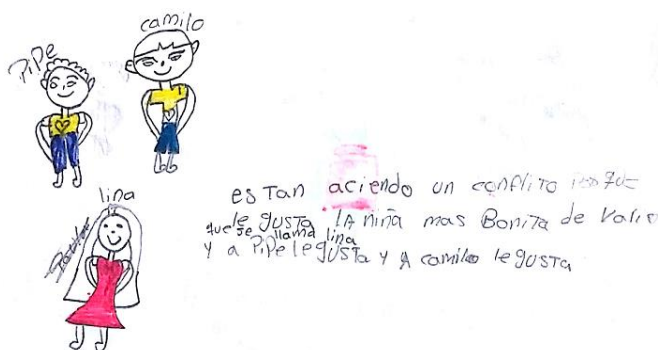 camilo
PiPe
lina
esTan aciendo un conflito porque
le gusta lA niña mas BoniTa de Vario
que se llama lina
y a PiPe le gusta y A camilo le gusta